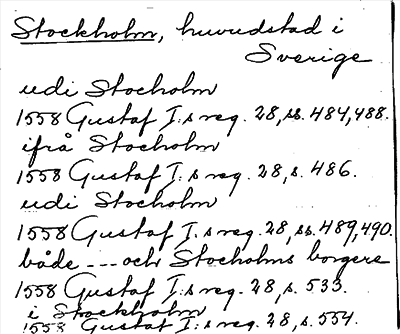 Stockholm, huvudstad i
Sverige
udi Stocholm
1558 Gustaf I:s reg. 28, ss. 484, 488.
ifrå Stocholm
1558 Gustaf I:s reg. 28, s. 486.
udi Stocholm
1558 Gustaf I:s reg. 28, ss. 489, 490.
både --- och Stocholms borgere
1558 Gustaf I:s reg. 28, s. 533.
i Stockholm
1558 Gustaf I:s reg. 28, s. 554.